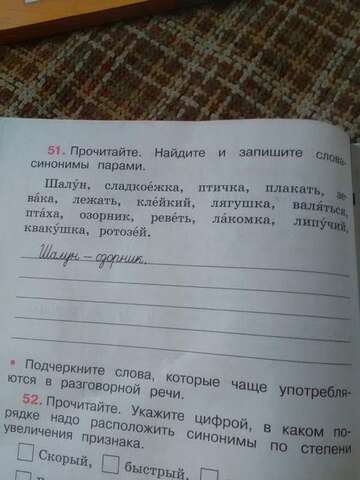 51. Прочитайте. Найдите и запишите слова-
синонимы парами.
Шалу́н, сладкое́жка, птичка, плакать, зе-
ва́ка, лежать, кле́йкий, лягушка, валя́ться,
пта́ха, озорник, реве́ть, ла́комка, липу́чий,
кваку́шка, ротозе́й.
Шалун – озорник,
• Подчеркните слова, которые чаще употребля-
ются в разговорной речи.
52. Прочитайте. Укажите цифрой, в каком по-
рядке надо расположить синонимы по степени
увеличения признака.
Скорый, быстрый,